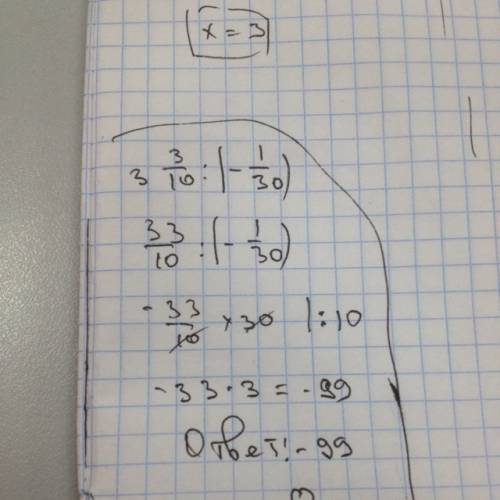 x = 3
3 3/10 : (- 1/30)
33/10 : (- 1/30)
- 33/10 × 30 | : 10
- 33 · 3 = - 99
Ответ: - 99
3